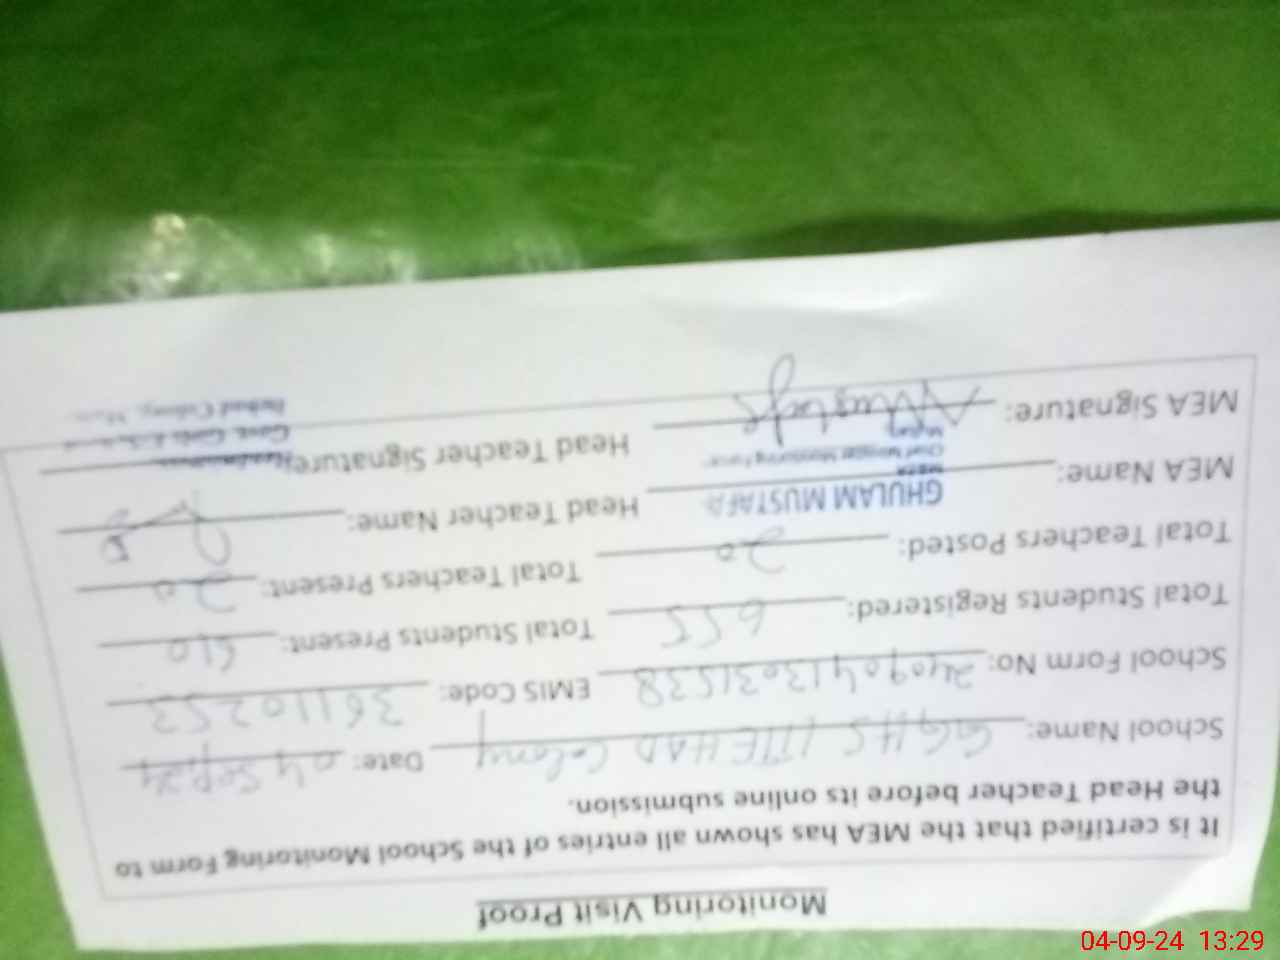 Monitoring Visit Proof
It is certified that the MEA has shown all entries of the School Monitoring Form to
the Head Teacher before its online submission.
School Name: GGHS ITTEHAD Colony Date: 04 Sep,24
School Form No: 24090413031538 EMIS Code: 36110253
Total Students Registered: 655 Total Students Present: 610
Total Teachers Posted: 20 Total Teachers Present: 20
MEA Name: GHULAM MUSTAFA Head Teacher Name:
MEA
Chief Minister Monitoring Force
MEA Signature: Head Teacher Signature:
Headmistress
04-09-24 13:29